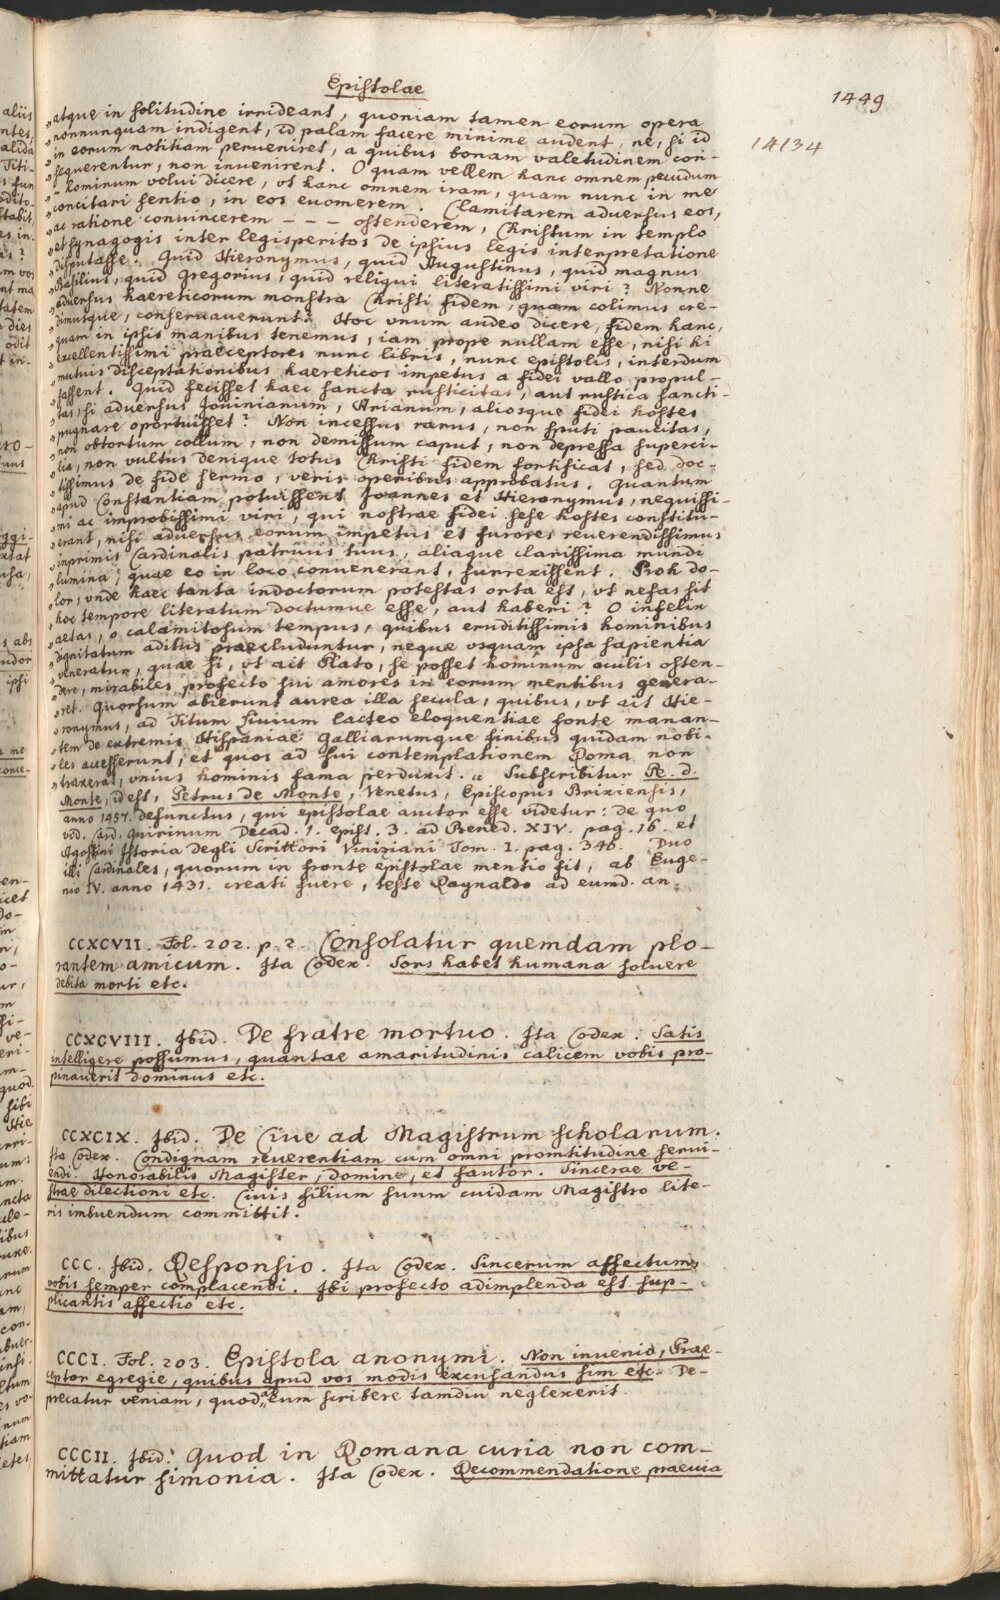 Epistolae
1449
14134
„atque in solitudine irrideant, quoniam tamen eorum opera
„nonnunquam indigent, id palam facere minime audent, ne, si id
„in eorum notitiam perveniret, a quibus bonam valetudinem con-
„sequerentur, non invenirent. O quam vellem hanc omnem pecudum
„- hominum volui dicere, vt hanc omnem iram, quam nunc in me
„concitari sentio, in eos euomerem. Clamitarem adversus eos,
„ac ratione convincerem - - - ostenderem, Christum in templo
„et synagogis inter legisperitos de ipsius legis interpretatione
„disputasse. Quid Hieronymus, quid Augustinus, quid magnus
„Basilius, quid Gregorius, quid reliqui literatissimi viri? Nonne
„adversus haereticorum monstra Christi fidem, quam colimus cre-
„dimusque, conservauerunt? Hoc vnum audeo dicere, fidem hanc,
„quam in ipsis manibus tenemus, iam prope nullam esse, nisi hi
„excellentissimi praeceptores nunc libris, nunc epistolis, interdum
„mutuis disceptationibus haereticos impetus a fidei vallo propul-
„sassent. Quid fecisset haec sancta rusticitas, aut rustica sancti-
„tas, si adversus Jovinianum, Arianum, aliosque fidei hostes
„pugnare oportuisset? Non incessus rarus, non sputi paucitas,
„non obtortum collum, non demissum caput, non depressa superci-
„lia, non vultus denique totus Christi fidem fortificat, sed doc-
„tissimus de fide sermo, veris operibus approbatus. Quantum
„apud Constantiam potuissent Joannes et Hieronymus, nequissi-
„mi ac improbissimi viri, qui nostrae fidei sese hostes constitu-
„erant, nisi adversus eorum impetus et furores reverendissimus
„inprimis Cardinalis patruus tuus, aliaque clarissima mundi
„lumina, quae eo in loco convenerant, surrexissent. Proh do-
„lor, vnde haec tanta indoctorum potestas orta est, vt nefas sit
„hoc tempore literatum doctumue esse, aut haberi? O infelix
„aetas, o calamitosum tempus, quibus eruditissimis hominibus
„dignitatum aditus praecluduntur, neque vsquam ipsa sapientia
„veneratur, quae si, vt ait Plato, se posset hominum oculis osten-
„dere, mirabiles profecto sui amores in eorum mentibus genera-
„ret. Quorsum abierunt aurea illa secula, quibus, vt ait Hie-
„ronymus, ad Titum Livium lacteo eloquentiae fonte manan-
„tem de extremis Hispaniae Galliarumque finibus quidam nobi-
„les accesserunt, et quos ad sui contemplationem Roma non
„traxerat, vnius hominis fama perduxit. „ Subscribitur Pe. d.
Monte, id est, Petrus de Monte, Venetus, Episcopus Brixiensis,
anno 1457. defunctus, qui epistolae auctor esse videtur: de quo
vid. Card. Quirinum Decad. 1. epist. 3. ad Bened. XIV. pag. 16. et
Agostini Istoria degli Scrittori Viniziani Tom. I. pag. 346. Duo
illi Cardinales, quorum in fronte epistolae mentio fit, ab Euge-
nio IV. anno 1431. creati fuere, teste Raynaldo ad eumd. an.
CCXCVII. Fol. 202. p. 2. Consolatur quemdam plo-
rantem amicum. Ita Codex. Sors habet humana soluere
debita morti etc.
CCXCVIII. Ibid. De fratre mortuo. Ita Codex. Satis
intelligere possumus, quantae amaritudinis calicem vobis pro-
pinauerit dominus etc.
CCXCIX. Ibid. De Ciue ad Magistrum scholarum.
Ita Codex. Condignam reuerentiam cum omni promtitudine serui-
endi. Honorabilis Magister, domine, et fautor. Sincerae ve-
strae dilectioni etc. Ciuis filium suum cuidam Magistro lite-
ris imbuendum committit.
CCC. Ibid. Responsio. Ita Codex. Sincerum affectum
vobis semper complacendi. Ibi profecto adimplenda est sup-
plicantis affectio etc.
CCCI. Fol. 203. Epistola anonymi. Non invenio, Prae-
ceptor egregie, quibus apud vos modis excusandus sim etc. De-
precatur veniam, quod ad eum scribere tamdiu neglexerit.
CCCII. Ibid. Quod in Romana curia non com-
mittatur simonia. Ita Codex. Recommendatione praevia